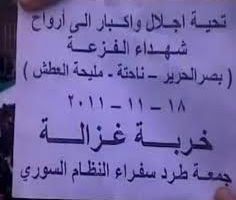 تحية اجلال واكبار الى أرواح
شهداء الفزعة
( بصر الحرير – ناحتة – مليحة العطش )
١٨ – ١١ – ٢٠١١
خربة غزالة
جمعة طرد سفراء النظام السوري